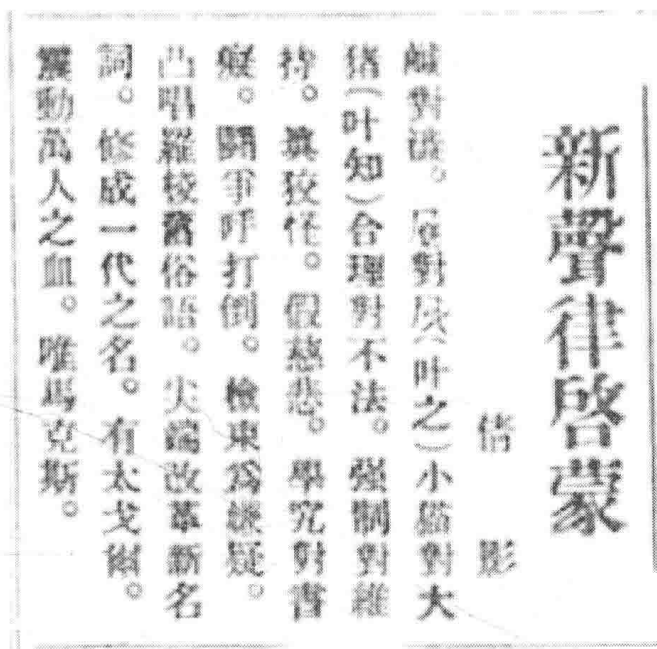 新聲律啓蒙
倩影
鹹對淡。對(叶之)小貓對大
猪(叶知)合理對不法。强制對維
持。眞狡怪。假慈悲。學究對書
癡。鬪爭呼打倒。檢束爲嫌疑。
凸唱羅校舊俗語。尖端改革新名
詞。修成一代之名。有太戈爾。
震動萬人之血。唯馬克斯。